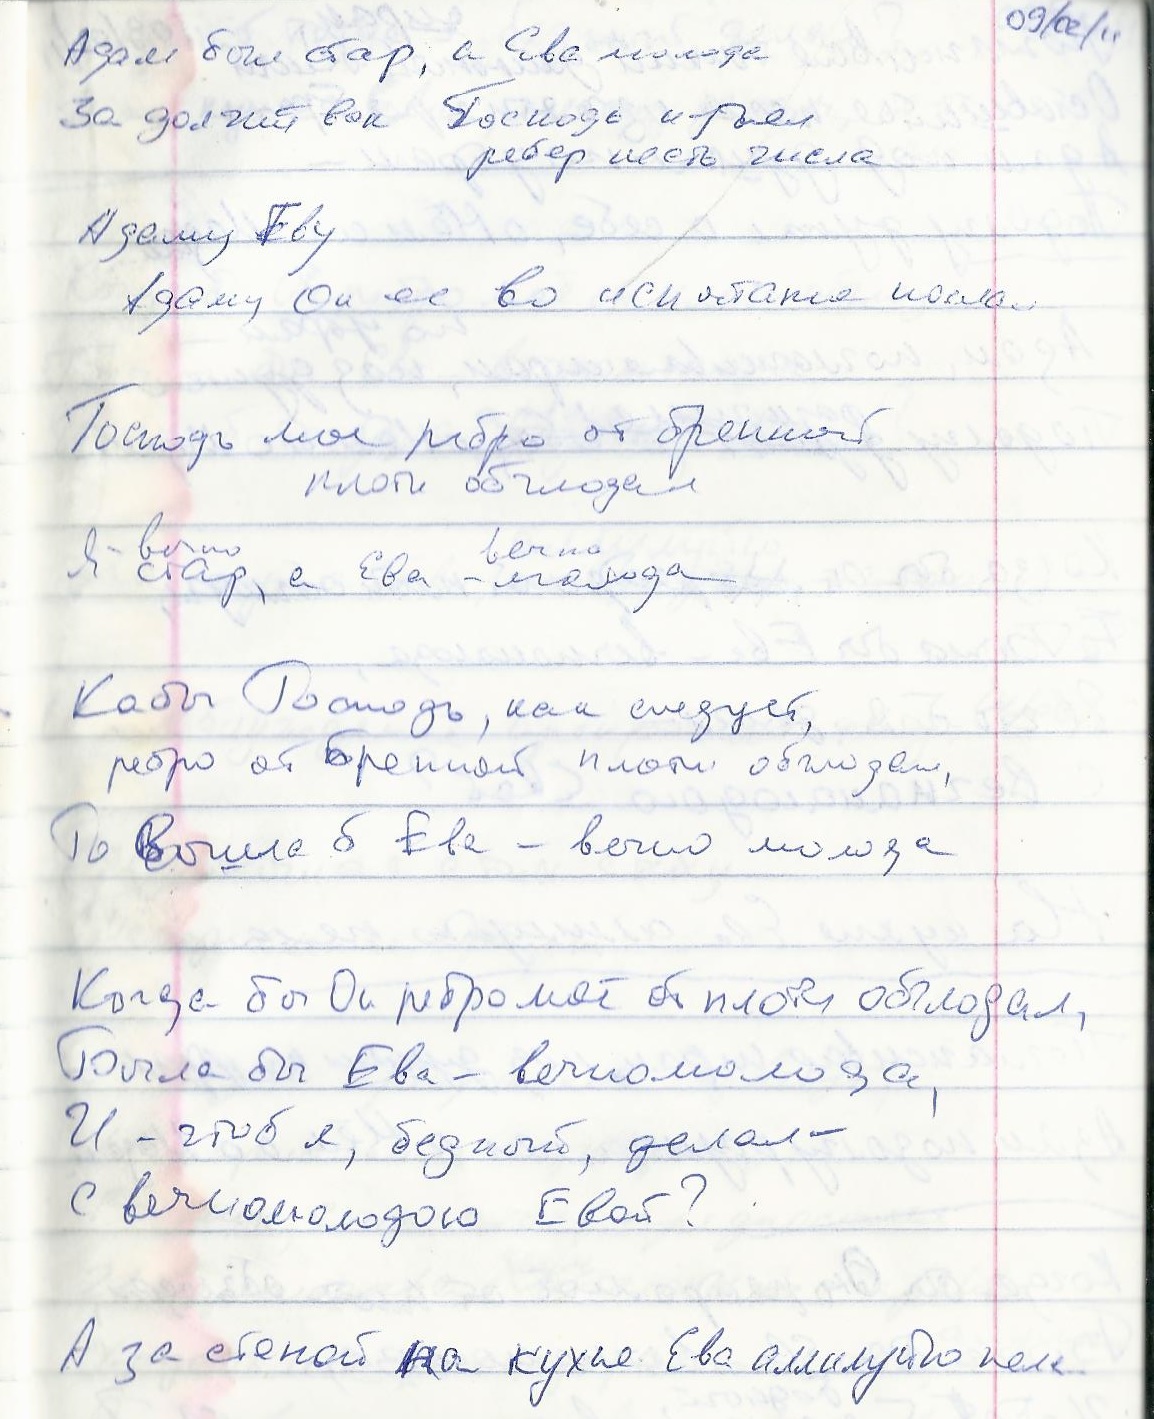 09/02/11
Адам был стар, а Ева молода
За долгий век Господь изъял
ребер несть числа
Адаму Еву
Адаму Он ее во испытание послал
Господь мое ребро от бренной
плоти обглодал
Я - вечно стар, а Ева - вечно молода
Кабы Господь, как следует,
ребро от бренной плоти обглодал,
То вышла б Ева - вечно молода
Когда бы Он ребро моё от плоти обглодал,
Была бы Ева - вечномолода,
И - чтоб я, бедный, делал -
С вечномолодою Евой?
А за стеной на кухне Ева аллилуйю пела